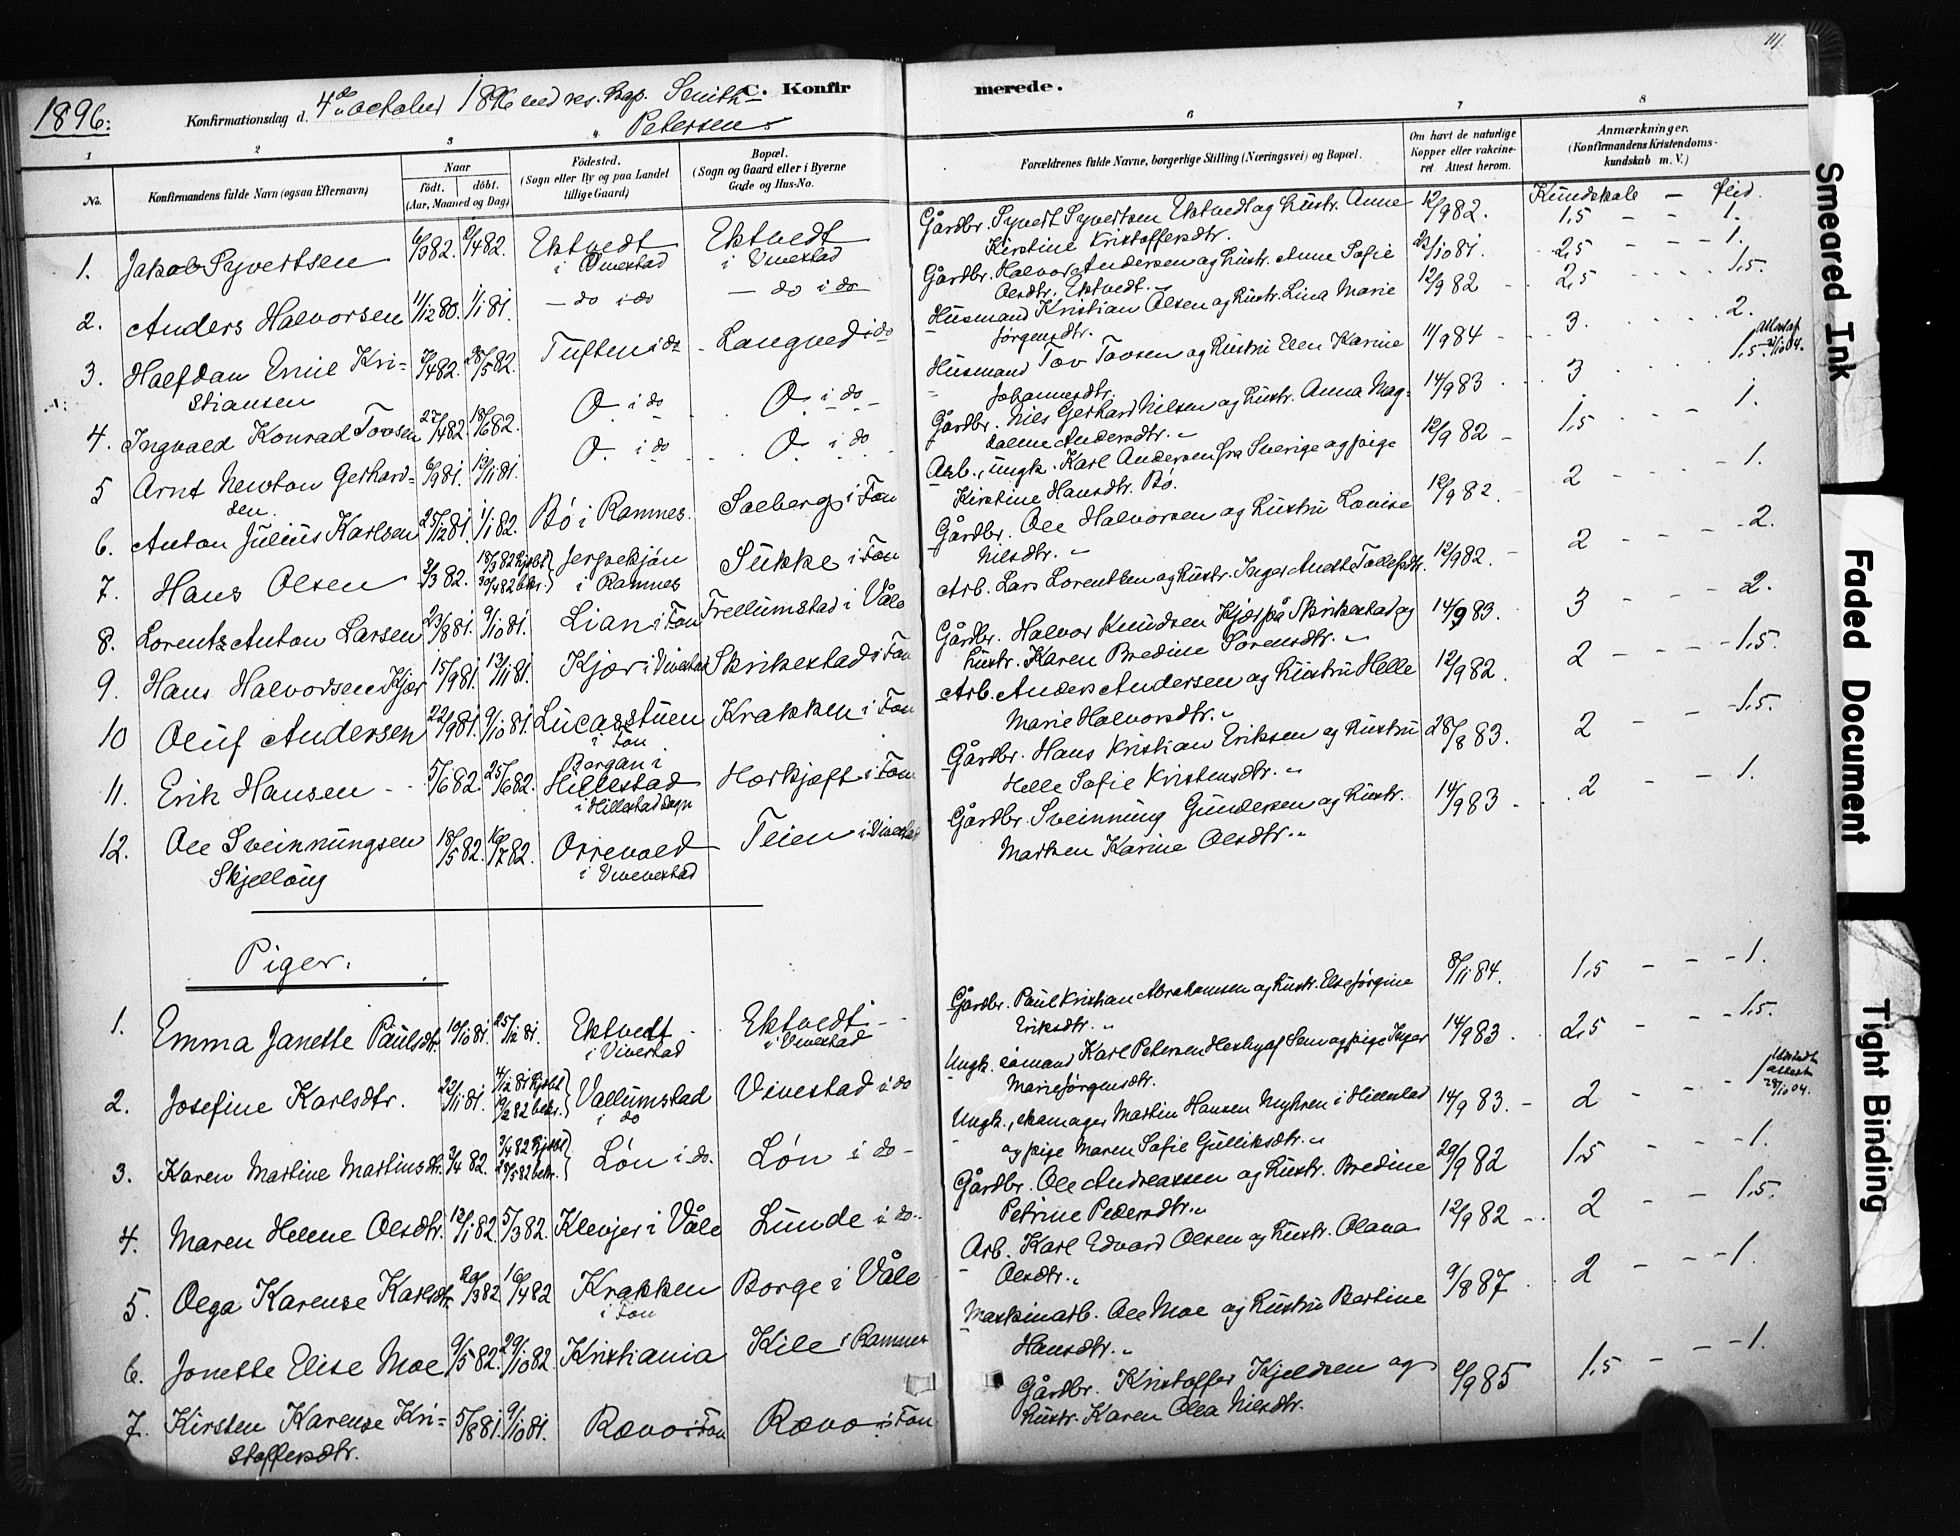 111.
1896.
Konfirmationsdag d. 4de october 1896 ved res. Kap. Smith-
Petersen.
C. Konfir
merede.
1
2
3
6
7
8
No.
Konfirmandens fulde Navn (ogsaa Efternavn)
Naar
født. døbt.
(Aar, Maaned og Dag)
Fødested.
(Sogn eller By og paa Landet
tillige Gaard)
Bopæl.
(Sogn og Gaard eller i Byerne
Gade og Hus-No.
Forældrenes fulde Navne, borgerlige Stilling (Næringsvei) og Bopæl.
Om havt de naturlige
Kopper eller vakcine-
ret. Attest herom.
Anmærkninger.
(Konfirmandens Kristendoms-
kundskab m. V.)
Kundskab — flid.
1. Jakob Syvertsen 6/3 82. 2/4 82. Ektvedt i Vivestad Ektvedt i Vivestad Gårdbr. Syvert Syvertsen Ektvedt og hustr. Anne 12/9 82. 1,5 - - 1.
Kirstine Kristoffersdtr.
2. Anders Halvorsen 11/12 80. 1/1 81. — do i do — do i do Gårdbr. Halvor Andersen og hustr. Anne Sofie 23/10 81. 2,5 - - - 1.
Olsdtr. Ektvedt.
3. Halfdan Emil Kri- 7/4 82. 28/5 82. Tuften i do Langved i do Husmand Kristian Olsen og hustr. Lina Marie 12/9 82 2,5 1,5.
stiansen Jørgensdtr.
4. Ingvald Konrad Tovsen 27/4 82. 18/6 82. O i do O i do Husmand Tov Tovsen og hustru Elen Karine 11/9 84 3. 2.
Johannesdtr.
5 Arnt Newton Gerhard- 6/9 81. 13/11 81. O i do O i do Gårdbr. Nils Gerhard Nilsen og hustr. Anna Mag- 14/9 83 3 1,5.
sen. dalene Andersdtr. "
6. Anton Julius Karlsen 25/12 81. 1/1 82. Bö i Ramnes. Solberg i Fon Arb., ungk. Karl Andersen fra Sverige og pige 12/9 82 1,5 1.
Kirstine Hansdtr. Bö.
7. Hans Olsen 3/3 82. i Ramnes Sukke i Fon Gårdbr. Ole Halvorsen og hustru Lovise 12/9 82. 2 - - 1.
Nilsdtr. "
8. Lorentz Anton Larsen 23/8 81. 9/10 81. Lian i Fon i Våle Arb. Lars Lorentzen og hustr. Inger 12/9 82. 2 - - 2.
9. Hans Halvorsen Kjær 15/9 81. 13/11 81. Kjær i Vivestad Skrikestad i Fon Gårdbr. Halvor Knudsen Kjær på Skrikestad og 14/9 83. 3 - - 2.
hustr. Karen Bredine Sørensdtr. "
10 Oluf Andersen 22/9 81. 9/10 81. Lucasstuen i Fon Krakken i Fon Arb. Anders Andersen og hustru Helle 12/9 82. 2 - - 1,5.
Marie Halvorsdtr. "
11. Erik Hansen 5/6 82. 25/6 82. Bergan i Hillestad i Hillestad sogn i Fon Gårdbr. Hans Kristian Eriksen og hustru 28/8 83. 2 - - 1,5.
Helle Sofie Kristensdtr. "
12. Ole Sveinnungsen 18/5 82. 16/7 82. Orrevold i Vivestad Teien i Vivestad Gårdbr. Sveinnung Gundersen og hustr. 14/9 83 2 - - 1.
Skjellöug Karine Olsdtr. "
Piger.
1. Emma Janette Paulsdtr. 10/10 81. 25/12 81. Ektvedt i Vivestad Ektvedt i Vivestad Gårdbr. Paul Kristian Abrahamsen og hustr. Else Jørgine 8/11 84. 1,5 - - 1.
Eriksdtr. "
2. Josefine Karlsdtr. 22/11 81. Vallumstad i do Vivestad i do Ungk. sömand Karl Petersen af Sem og pige Inger 14/9 83 2,5 - - 1,5.
Marie Jørgensdtr.
3. Karen Martine Martinsdtr. 2/4 82. Lön i do. Lön i do - Ungk., skomager Martin Hansen Myhren i Hillestad 14/9 83. 2 - - 1
og pige Maren Sofie Gulliksdtr. "
4. Maren Helene Olsdtr. 12/1 82. 5/3 82. Klevjer i Våle Lunde i do. Gårdbr. Ole Andreassen og hustr. Bredine 20/9 82 1,5 - - 1.
Petrine Pedersdtr. "
5. Olga Karense Karlsdtr. 20/3 82 16/4 82 Krakken i Fon Borge i Våle Arb. Karl Edvard Olsen og hustr. Olava 12/9 82 2 - - 1,5.
Olsdtr. "
6. Jonette Elise Moe 9/5 82. 29/10 82 Kristiania Kile i Ramnes Maskinarb. Ole Moe og hustru Bertine 9/8 87 2 - - 1.
Hansdtr. "
7. Kirsten Karense Kri- 5/8 81. 9/10 81. Rævo i Fon Rævo i Fon Gårdbr. Kristoffer Kjeldsen og 9/9 85 1,5 - - 1.
stoffersdtr. hustr. Karen Olea Nilsdtr.
Smeared Ink
Faded Document
Tight Binding